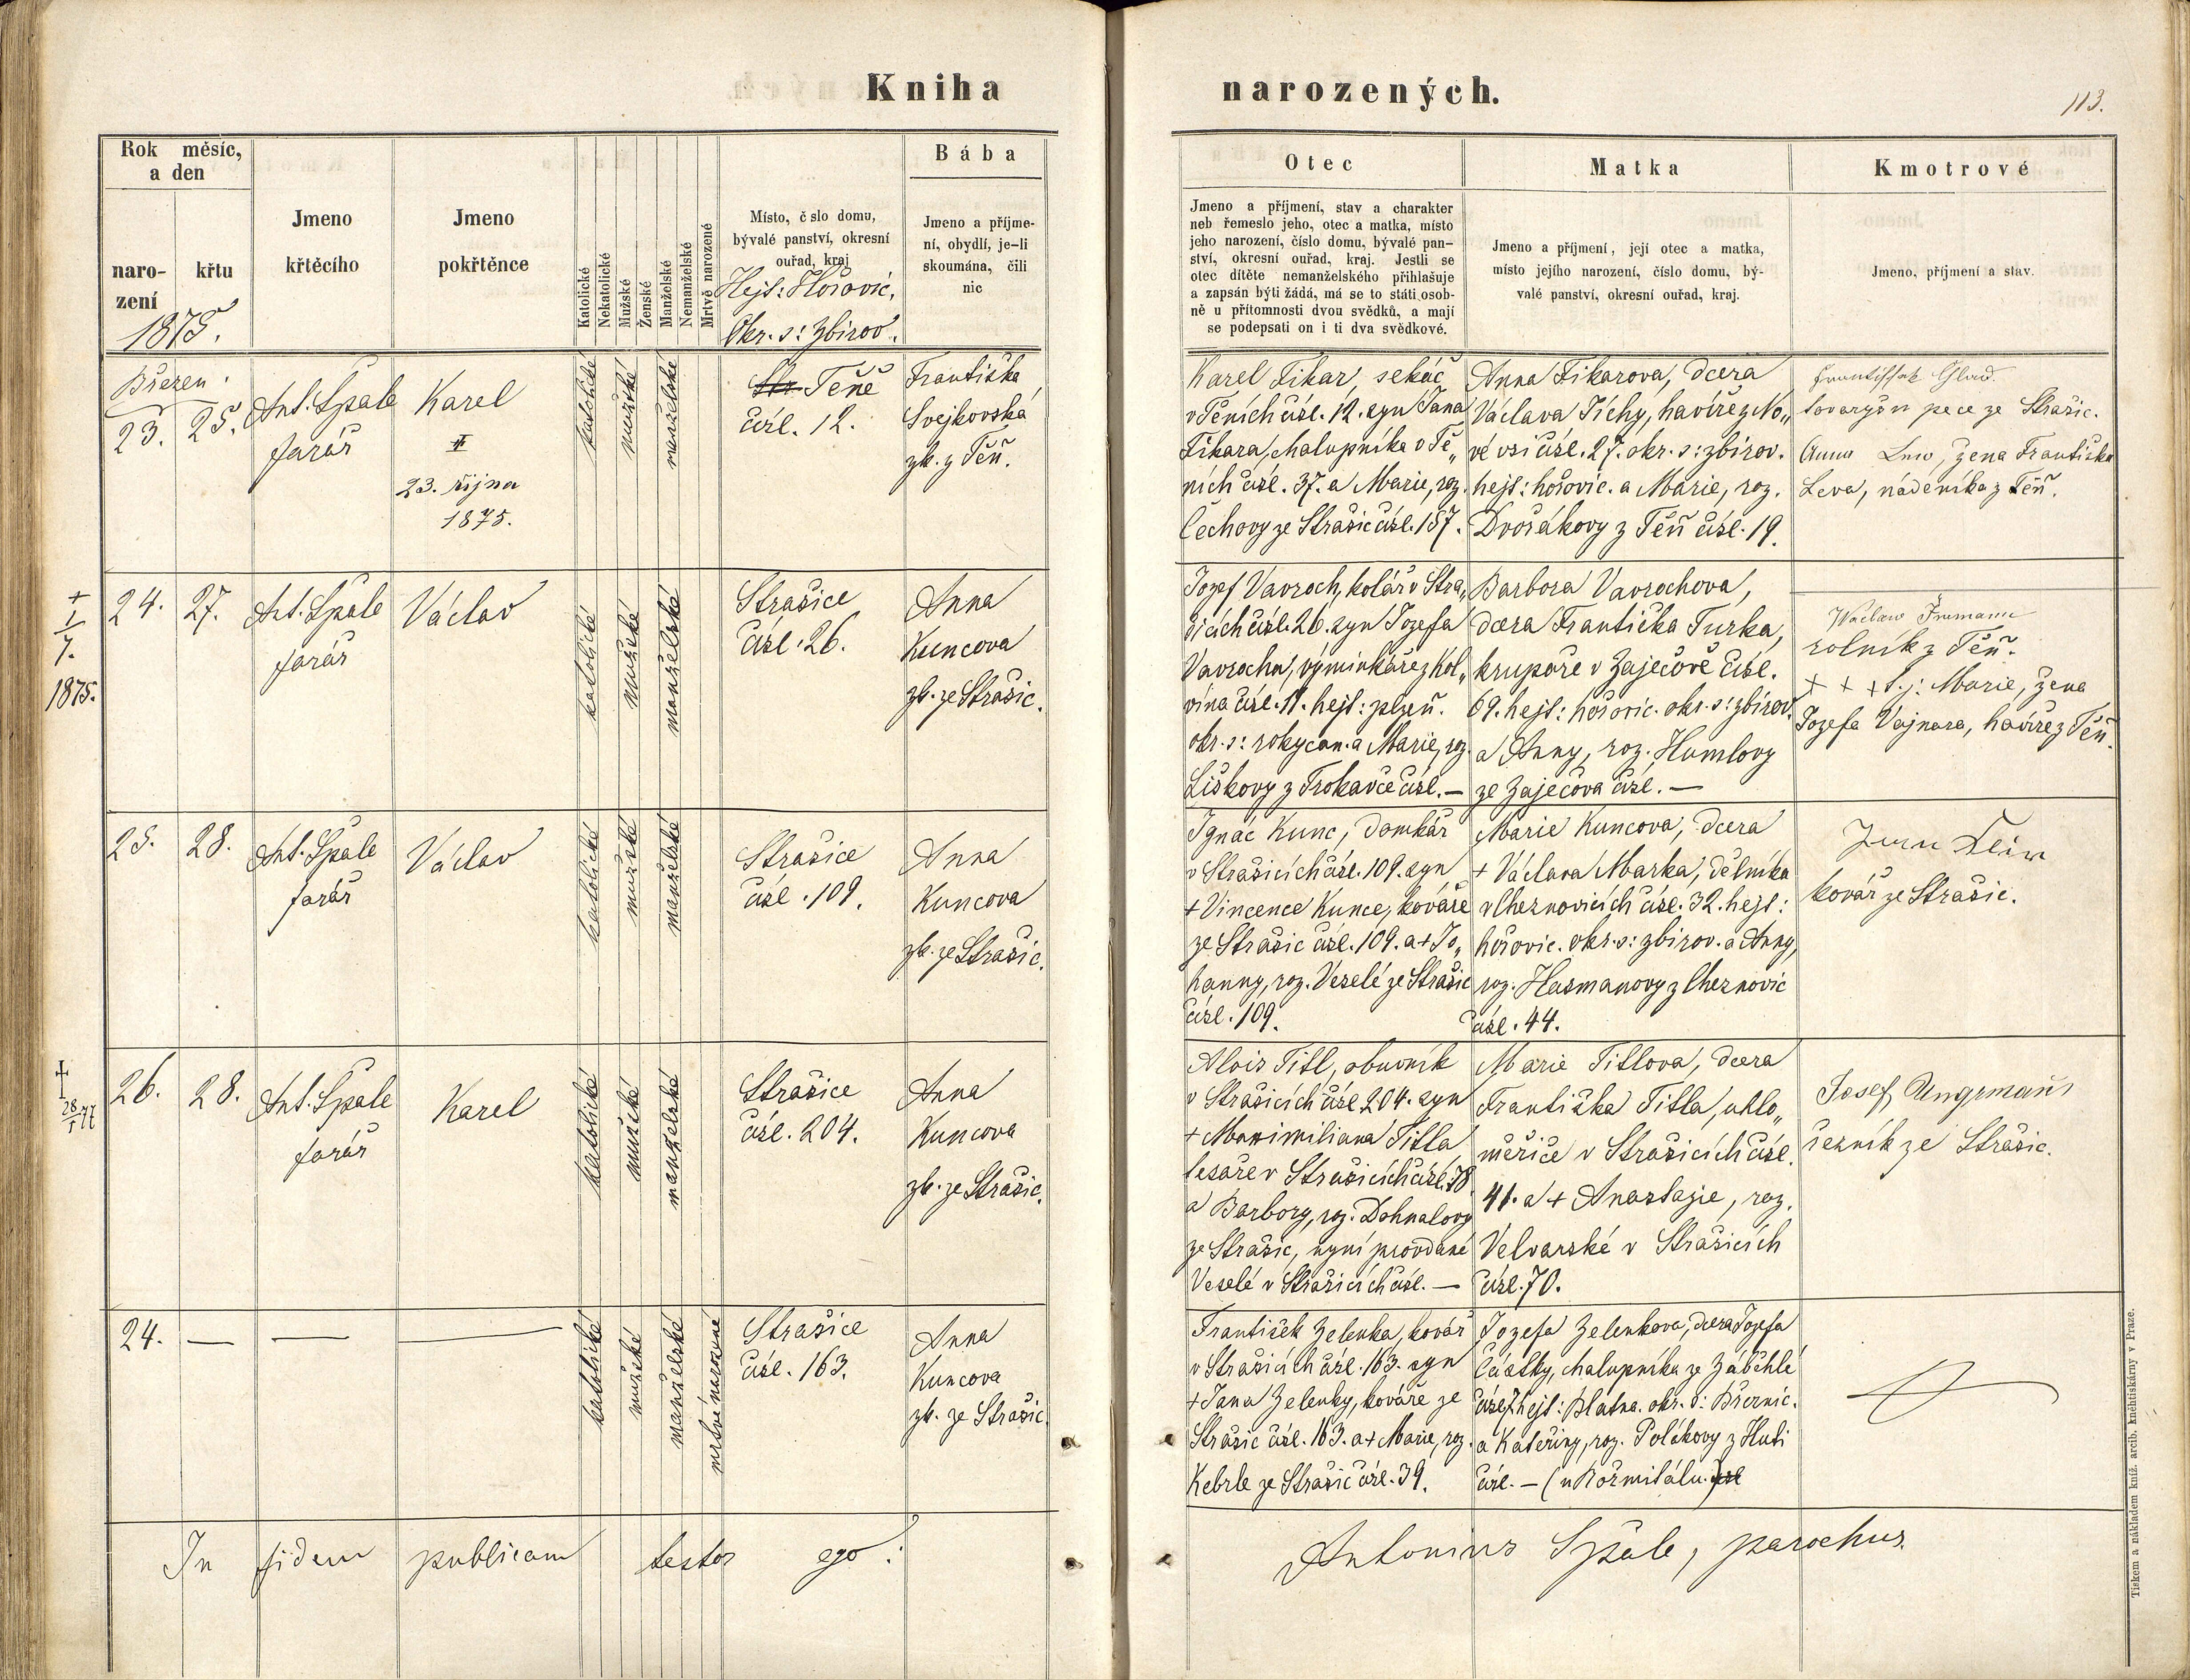 Kniha narozených.
113.
Rok měsíc,
a den
naro-
zení
křtu
1875.
Jmeno
křtěcího
Jmeno
pokřtěnce
Katolické
Nekatolické
Mužské
Ženské
Manželské
Nemanželské
Mrtvě narozené
Místo, č slo domu,
bývalé panství, okresní
ouřad, kraj
Hejt: Hořovic.
Okr. s: Zbirov.
Bába
Jmeno a příjme-
ní, obydlí, je-li
skoumána, čili
nic
Otec
Jmeno a příjmení, stav a charakter
neb řemeslo jeho, otec a matka, místo
jeho narození, číslo domu, bývalé pan-
ství, okresní ouřad, kraj. Jestli se
otec dítěte nemanželského přihlašuje
a zapsán býti žádá, má se to státi osob-
ně u přítomnosti dvou svědků, a mají
se podepsati on i ti dva svědkové.
Matka
Jmeno a příjmení, její otec a matka,
místo jejího narození, číslo domu, bý-
valé panství, okresní ouřad, kraj.
Kmotrové
Jmeno, příjmení a stav.
Březen.
23.
25.
Ant. Špale
farář
Karel
23. října
1875.
katolické
mužské
manželské
Těně
čísl. 12.
Františka
Svejkovská
zk. z Těň.
Karel Fikar, sekáč
v Těních čísl. 12. syn Jana
Fikara, chalupníka v Tě„
ních čísl. 37. a Marie, roz.
Čechovy ze Strašic čísl. 157.
Anna Fikarova, dcera
Václava Tichy, havíře z No„
vé vsi čísl. 27. okr. s: zbirov.
hejt: hořovic. a Marie, roz.
Dvořákovy z Těň čísl. 19.
tovaryš u pece ze Strašic.
Anna Lew, žena Františka
Leva, nádeníka z Těň.
+
1
7.
1875.
24.
27.
Ant. Špale
farář
Václav
katolické
mužské
manželské
Strašice
čísl. 26.
Anna
Kuncova
zk. ze Strašic.
Jozef Vavroch, kolář v Stra„
šicích čísl. 26. syn Jozefa
Vavrocha, výminkáře z Kol„
vína čísl. 11. hejt: plzeň.
okr. s: rokycan. a Marie, roz.
Liškovy z Trokavce čísl. —
Barbora Vavrochova,
dcera Františka Turka,
krupaře v Zaječově čísl.
69. hejt: hořovic. okr. s: zbirov.
a Anny, roz. Humlovy
ze Zaječova čísl. —
rolník z Těň.
+ + + t. j: Marie, žena
Jozefa Vajnara, havíře z Těň.
25.
28.
Ant. Špale
farář
Václav
katolické
mužské
manželské
Strašice
čísl. 109.
Anna
Kuncova
zk. ze Strašic.
Ignác Kunc, domkář
v Strašicích čísl. 109. syn
+ Vincence Kunce, kováře
ze Strašic čísl. 109. a + Jo„
hanny, roz. Veselé ze Strašic
čísl. 109.
Marie Kuncova, dcera
+ Václava Marka, dělníka
v Cheznovicích čísl. 32. hejt:
hořovic. okr. s: zbirov. a Anny,
roz. Hasmanovy z Cheznovic
čísl. 44.
kovář ze Strašic.
28/1 77
26.
28.
Ant. Špale
farář
Karel
katolické
mužské
manželské
Strašice
čísl. 204.
Anna
Kuncova
zk. ze Strašic.
Alois Titl, obuvník
v Strašicích čísl. 204. syn
+ Maximiliana Titla
tesaře v Strašicích čísl. 78
a Barbory, roz. Dohnalovy
ze Strašic, nyní provdané
Veselé v Strašicích čísl. —
Marie Titlova, dcera
Františka Titla, uhlo„
měřiče v Strašicích čísl.
41. a + Anastazie, roz.
Velvarské v Strašicích
čísl. 70.
Josef Ungrmann
řezník ze Strašic.
24.
—
—
—
katolické
mužské
manželské
mrtvě narozené
Strašice
čísl. 163.
Anna
Kuncova
zk. ze Strašic.
František Zelenka, kovář
v Strašicích čísl. 163. syn
+ Jana Zelenky, kováře ze
Strašic čísl. 163. a + Marie, roz.
Kebrle ze Strašic čísl. 39.
Jozefa Zelenkova, dcera Jozefa
Částky, chalupníka ze Záběhlé
čísl. 7. hejt: Blatna. okr. s: Březnic.
a Kateřiny, roz. Polákovy z Huti
čísl. — (u Rožmitálu.)
In fidem publicam testor ego:
Antonius Špale, parochus.
Tiskem a nákladem kníž. arcib. kněhtiskárny v Praze.